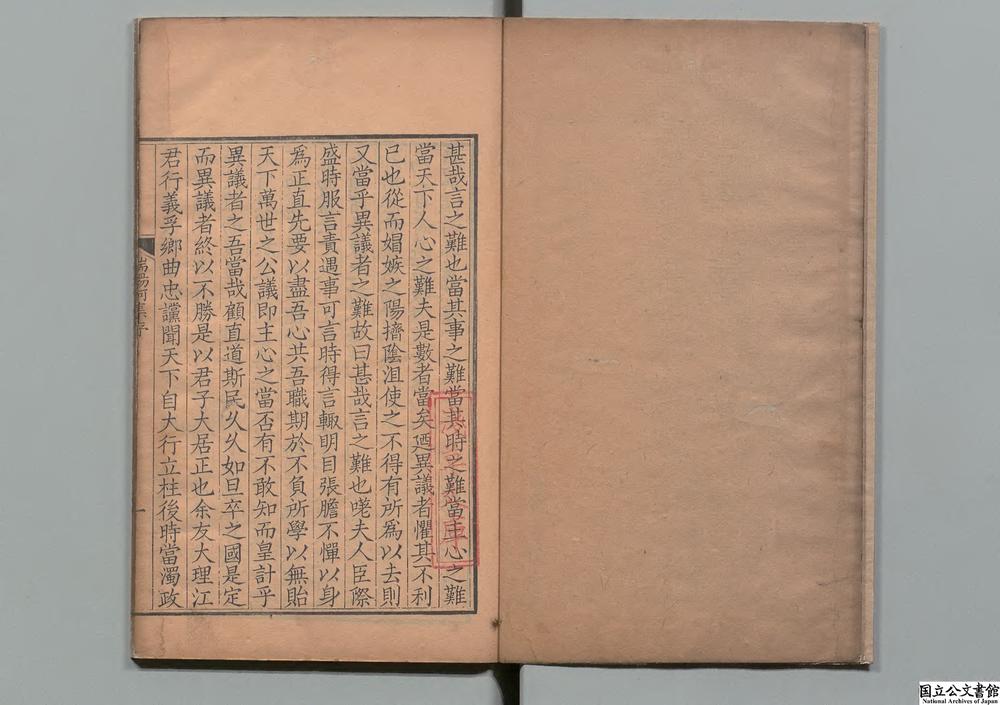 甚哉言之難也當其事之難當其時之難當主心之難
當天下人心之難夫是數者當矣廼異議者懼其不利
已也從而媢嫉之陽擠陰沮使之不得有所爲以去則
又當乎異議者之難故曰甚哉言之難也嗟夫人臣際
盛時服言責遇事可言時得言輙明目張膽不憚以身
爲正直先要以盡吾心共吾職期於不負所學以無貽
天下萬世之公議即主心之當否有不敢知而皇計乎
異議者之吾當哉顧直道斯民久久如旦卒之國是定
而異議者終以不勝是以君子大居正也余友大理江
君行義孚鄉曲忠讜聞天下自大行立柱後時當濁政
一
国立公文書館
National Archives of Japan